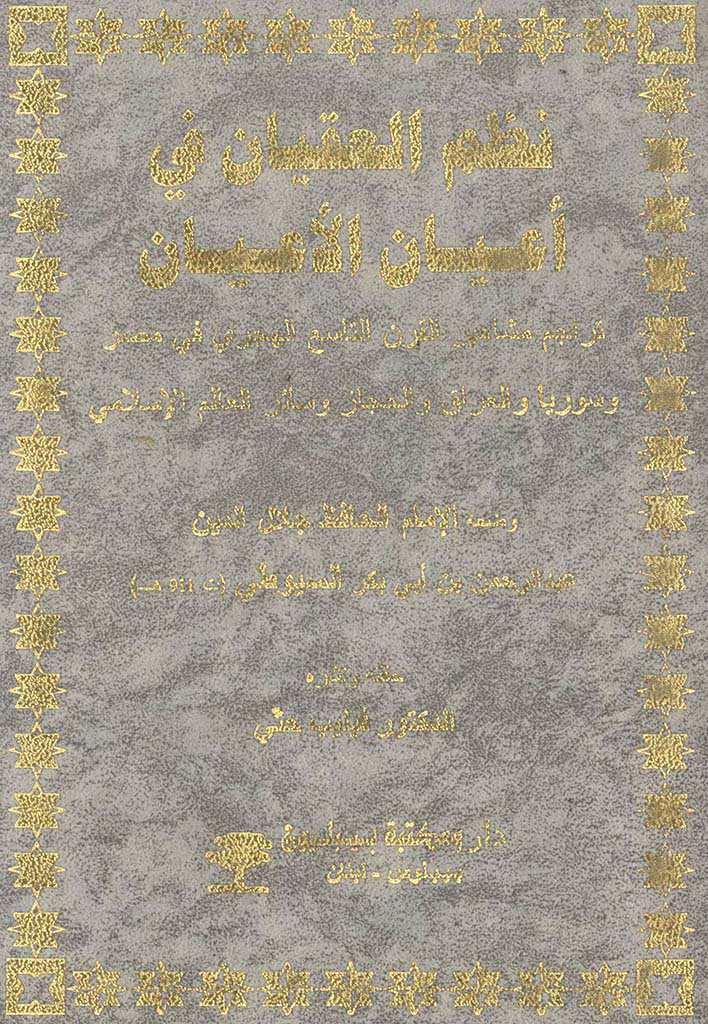 نظم العقيان في
أعيان الأعيان
تراجم مشاهير القرن التاسع الهجري في مصر
وسوريا والعراق والحجاز وسائر العالم الإسلامي
وضعه الإمام الحافظ جلال الدين
عبدالرحمن بن أبي بكر السيوطي (ت 911 هـ)
حققه ونشره
الدكتور فيليب حتّي
دار ومكتبة بيبليون
جبيل - لبنان